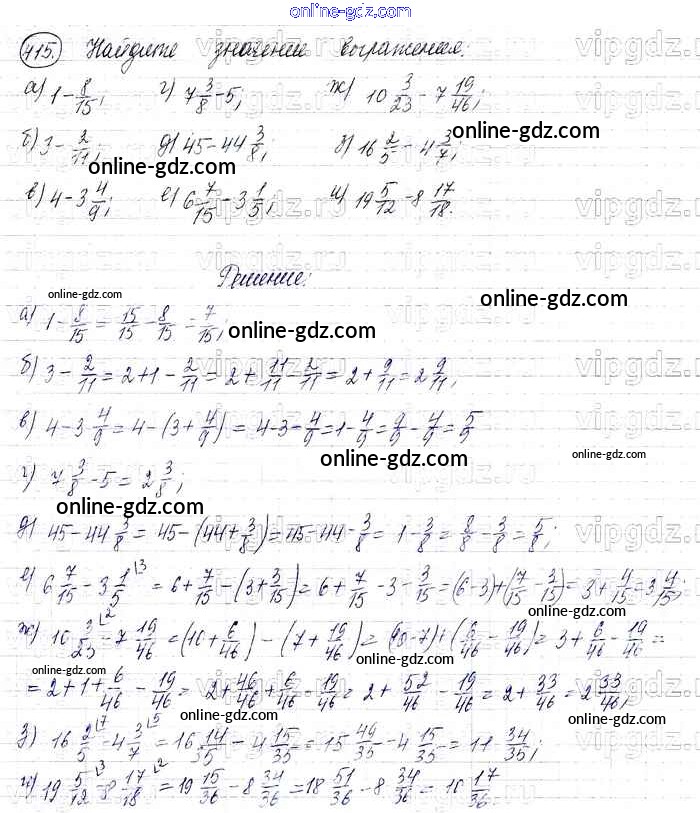 online-gdz.com
415. Найдите значение выражения:
а) 1 - 8/15; г) 7 3/8 - 5; ж) 10 3/23 - 7 19/46;
б) 3 - 2/11; д) 45 - 44 3/8; з) 16 2/5 - 4 3/7;
online-gdz.com
online-gdz.com
в) 4 - 3 4/9; е) 6 7/15 - 3 1/5; и) 19 5/12 - 8 17/18.
Решение:
online-gdz.com
online-gdz.com
а) 1 - 8/15 = 15/15 - 8/15 = 7/15;
online-gdz.com
б) 3 - 2/11 = 2 + 1 - 2/11 = 2 + 11/11 - 2/11 = 2 + 9/11 = 2 9/11;
в) 4 - 3 4/9 = 4 - (3 + 4/9) = 4 - 3 - 4/9 = 1 - 4/9 = 9/9 - 4/9 = 5/9
online-gdz.com
online-gdz.com
г) 7 3/8 - 5 = 2 3/8;
online-gdz.com
д) 45 - 44 3/8 = 45 - (44 + 3/8) = 45 - 44 - 3/8 = 1 - 3/8 = 8/8 - 3/8 = 5/8;
е) 6 7/15 - 3 1/5 ⌊3 = 6 + 7/15 - (3 + 3/15) = 6 + 7/15 - 3 - 3/15 = (6 - 3) + (7/15 - 3/15) = 3 + 4/15 = 3 4/15;
ж) 10 3/23 ⌊2 - 7 19/46 = (10 + 6/46) - (7 + 19/46) = (10 - 7) + (6/46 - 19/46) = 3 + 6/46 - 19/46 =
online-gdz.com
online-gdz.com
= 2 + 1 + 6/46 - 19/46 = 2 + 46/46 + 6/46 - 19/46 = 2 + 52/46 - 19/46 = 2 + 33/46 = 2 33/46;
online-gdz.com
online-gdz.com
з) 16 2/5 ⌊7 - 4 3/7 ⌊5 = 16 14/35 - 4 15/35 = 15 49/35 - 4 15/35 = 11 34/35;
online-gdz.com
и) 19 5/12 ⌊3 - 8 17/18 ⌊2 = 19 15/36 - 8 34/36 = 18 51/36 - 8 34/36 = 10 17/36.
vipgdz.ru